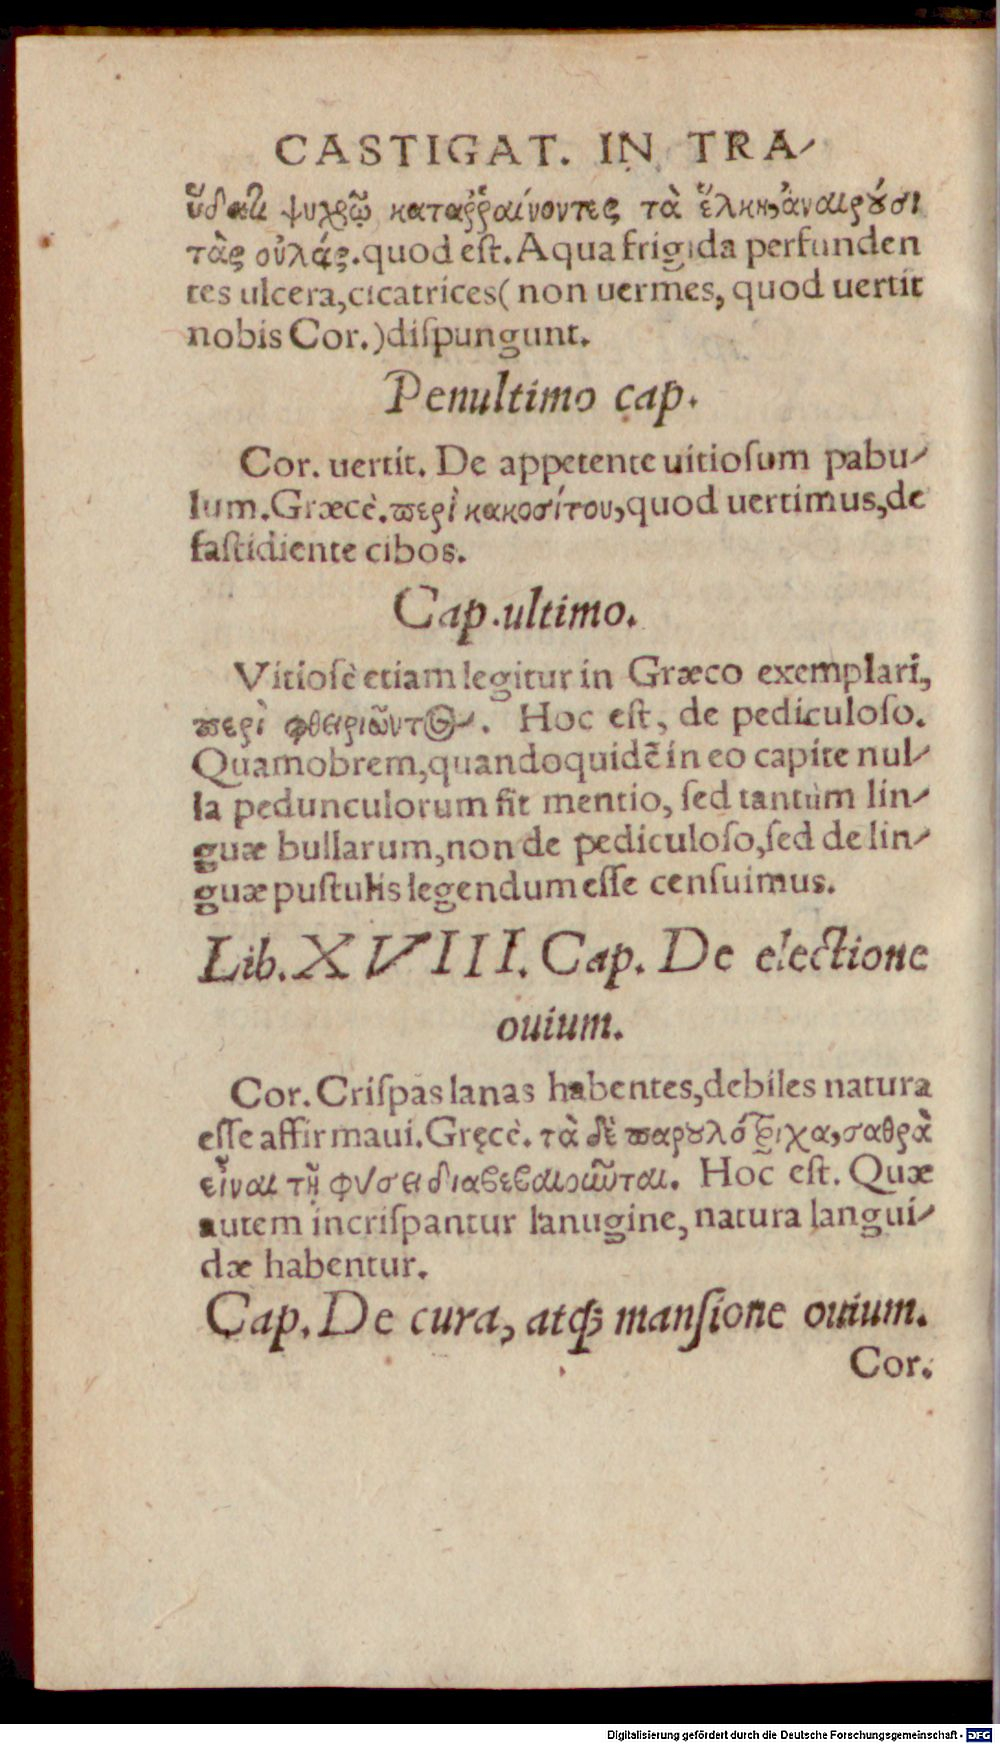 CASTIGAT. IN TRA-
ὕδατι ψυχρῷ καταῤῥαίνοντες τὰ ἕλκη, ἀναιροῦσι
τὰς οὐλάς. quod eſt. Aqua frigida perfunden
tes ulcera, cicatrices (non uermes, quod uertit
nobis Cor.) diſpungunt.
Penultimo cap.
Cor. uertit. De appetente uitioſum pabu-
lum. Græcè. περὶ κακοσίτου, quod uertimus, de
faſtidiente cibos.
Cap. ultimo.
Vitioſè etiam legitur in Græco exemplari,
περὶ φθειριῶντος. Hoc eſt, de pediculoſo.
Quamobrem, quandoquidē in eo capite nul-
la pedunculorum fit mentio, ſed tantùm lin-
guæ bullarum, non de pediculoſo, ſed de lin-
guæ puſtulis legendum eſſe cenſuimus.
Lib. XVIII. Cap. De electione
ouium.
Cor. Criſpas lanas habentes, debiles natura
eſſe affirmaui. Gręcè. τὰ δὲ παρουλότριχα, σαθρὰ
εἶναι τῇ φύσει διαβεβαιοῦται. Hoc eſt. Quæ
autem incriſpantur lanugine, natura langui-
dæ habentur.
Cap. De cura, atq; manſione ouium.
Cor.
Digitalisierung gefördert durch die Deutsche Forschungsgemeinschaft - DFG